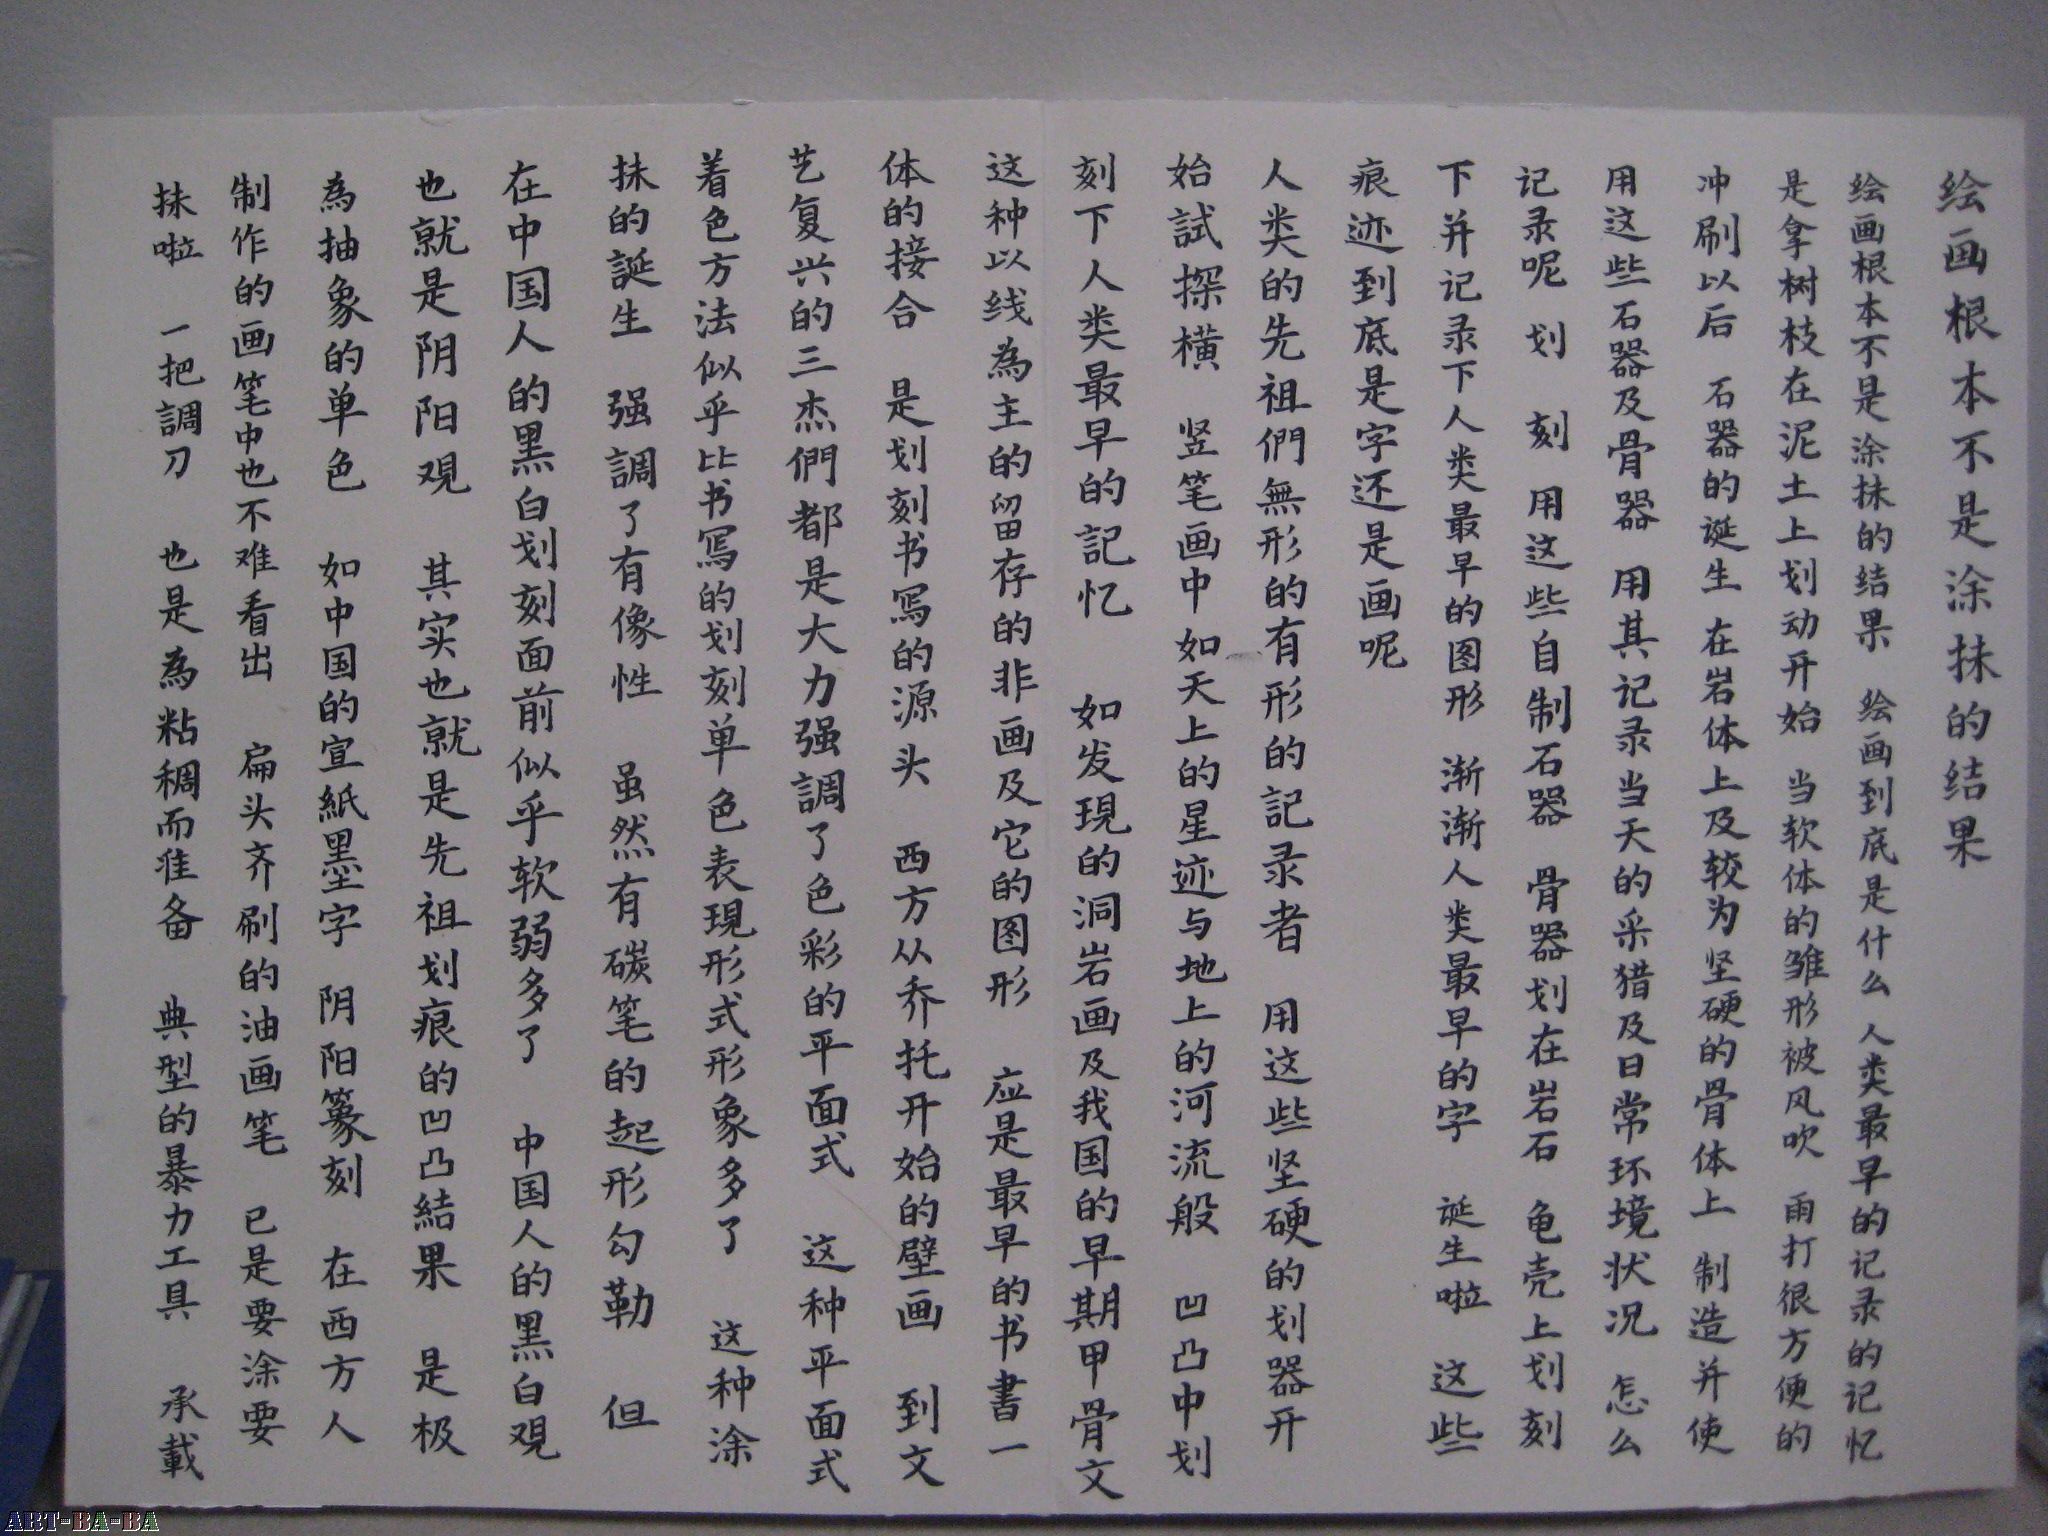 绘画根本不是涂抹的结果
绘画根本不是涂抹的结果 绘画到底是什么 人类最早的记录的记忆
是拿树枝在泥土上划动开始 当软体的雏形被风吹 雨打很方便的
冲刷以后 石器的诞生 在岩体上及较为坚硬的骨体上 制造并使
用这些石器及骨器 用其记录当天的采猎及日常环境状况 怎么
记录呢 划 刻 用这些自制石器 骨器划在岩石 龟壳上划刻
下并记录下人类最早的图形 渐渐人类最早的字 诞生啦 这些
痕迹到底是字还是画呢
人类的先祖們無形的有形的記录者 用这些坚硬的划器开
始試探横 竖笔画中如天上的星迹与地上的河流般 凹凸中划
刻下人类最早的記忆 如发現的洞岩画及我国的早期甲骨文
这种以线為主的留存的非画及它的图形 应是最早的书書一
体的接合 是划刻书写的源头 西方从乔托开始的壁画 到文
艺复兴的三杰們都是大力强調了色彩的平面式 这种平面式
着色方法似乎比书写的划刻单色表現形式形象多了 这种涂
抹的誕生 强調了有像性 虽然有碳笔的起形勾勒 但
在中国人的黑白划刻面前似乎软弱多了 中国人的黑白观
也就是阴阳观 其实也就是先祖划痕的凹凸結果 是极
為抽象的单色 如中国的宣紙墨字 阴阳篆刻 在西方人
制作的画笔中也不难看出 扁头齐刷的油画笔 已是要涂要
抹啦 一把調刀 也是為粘稠而准备 典型的暴力工具 承載
ART-BA-BA